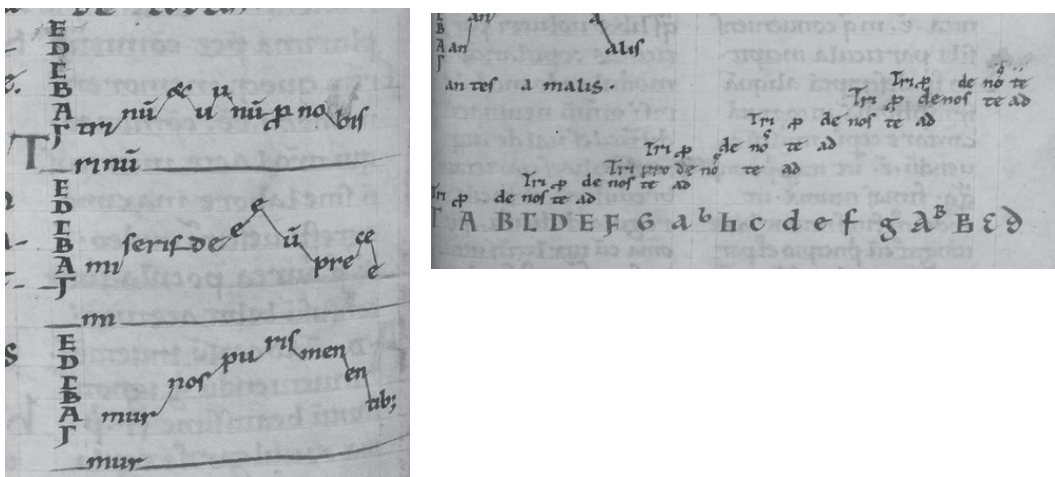 E
D
C
B
A
Γ
tri nū & u u nū ꝓ no bis
Trinū
E
D
C
B
A
Γ
mi seris de e e ū pre ce e
mi
E
D
C
B
A
Γ
mur nos pu ris men en tib;
mur
B
A
Γ
an an a alis
an tes a malis.
Tri ꝓ de nos te
Tri ꝓ de nos te ad
Tri ꝓ de nos te ad
Tri ꝓ de nos te ad
Tri pro de nos te ad
Tri ꝓ de nos te ad
Tri ꝓ de nos te ad
Γ A B C D E F G a b h c d e f g A B B C D